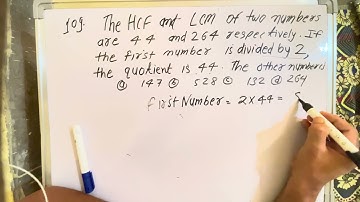 109. The HCF and LCM of two numbers
are 44 and 264 respectively. If
the first number is divided by 2,
the quotient is 44. The other number is
ⓐ 147 ⓑ 528 ⓒ 132 ⓓ 264
First Number = 2 × 44 =